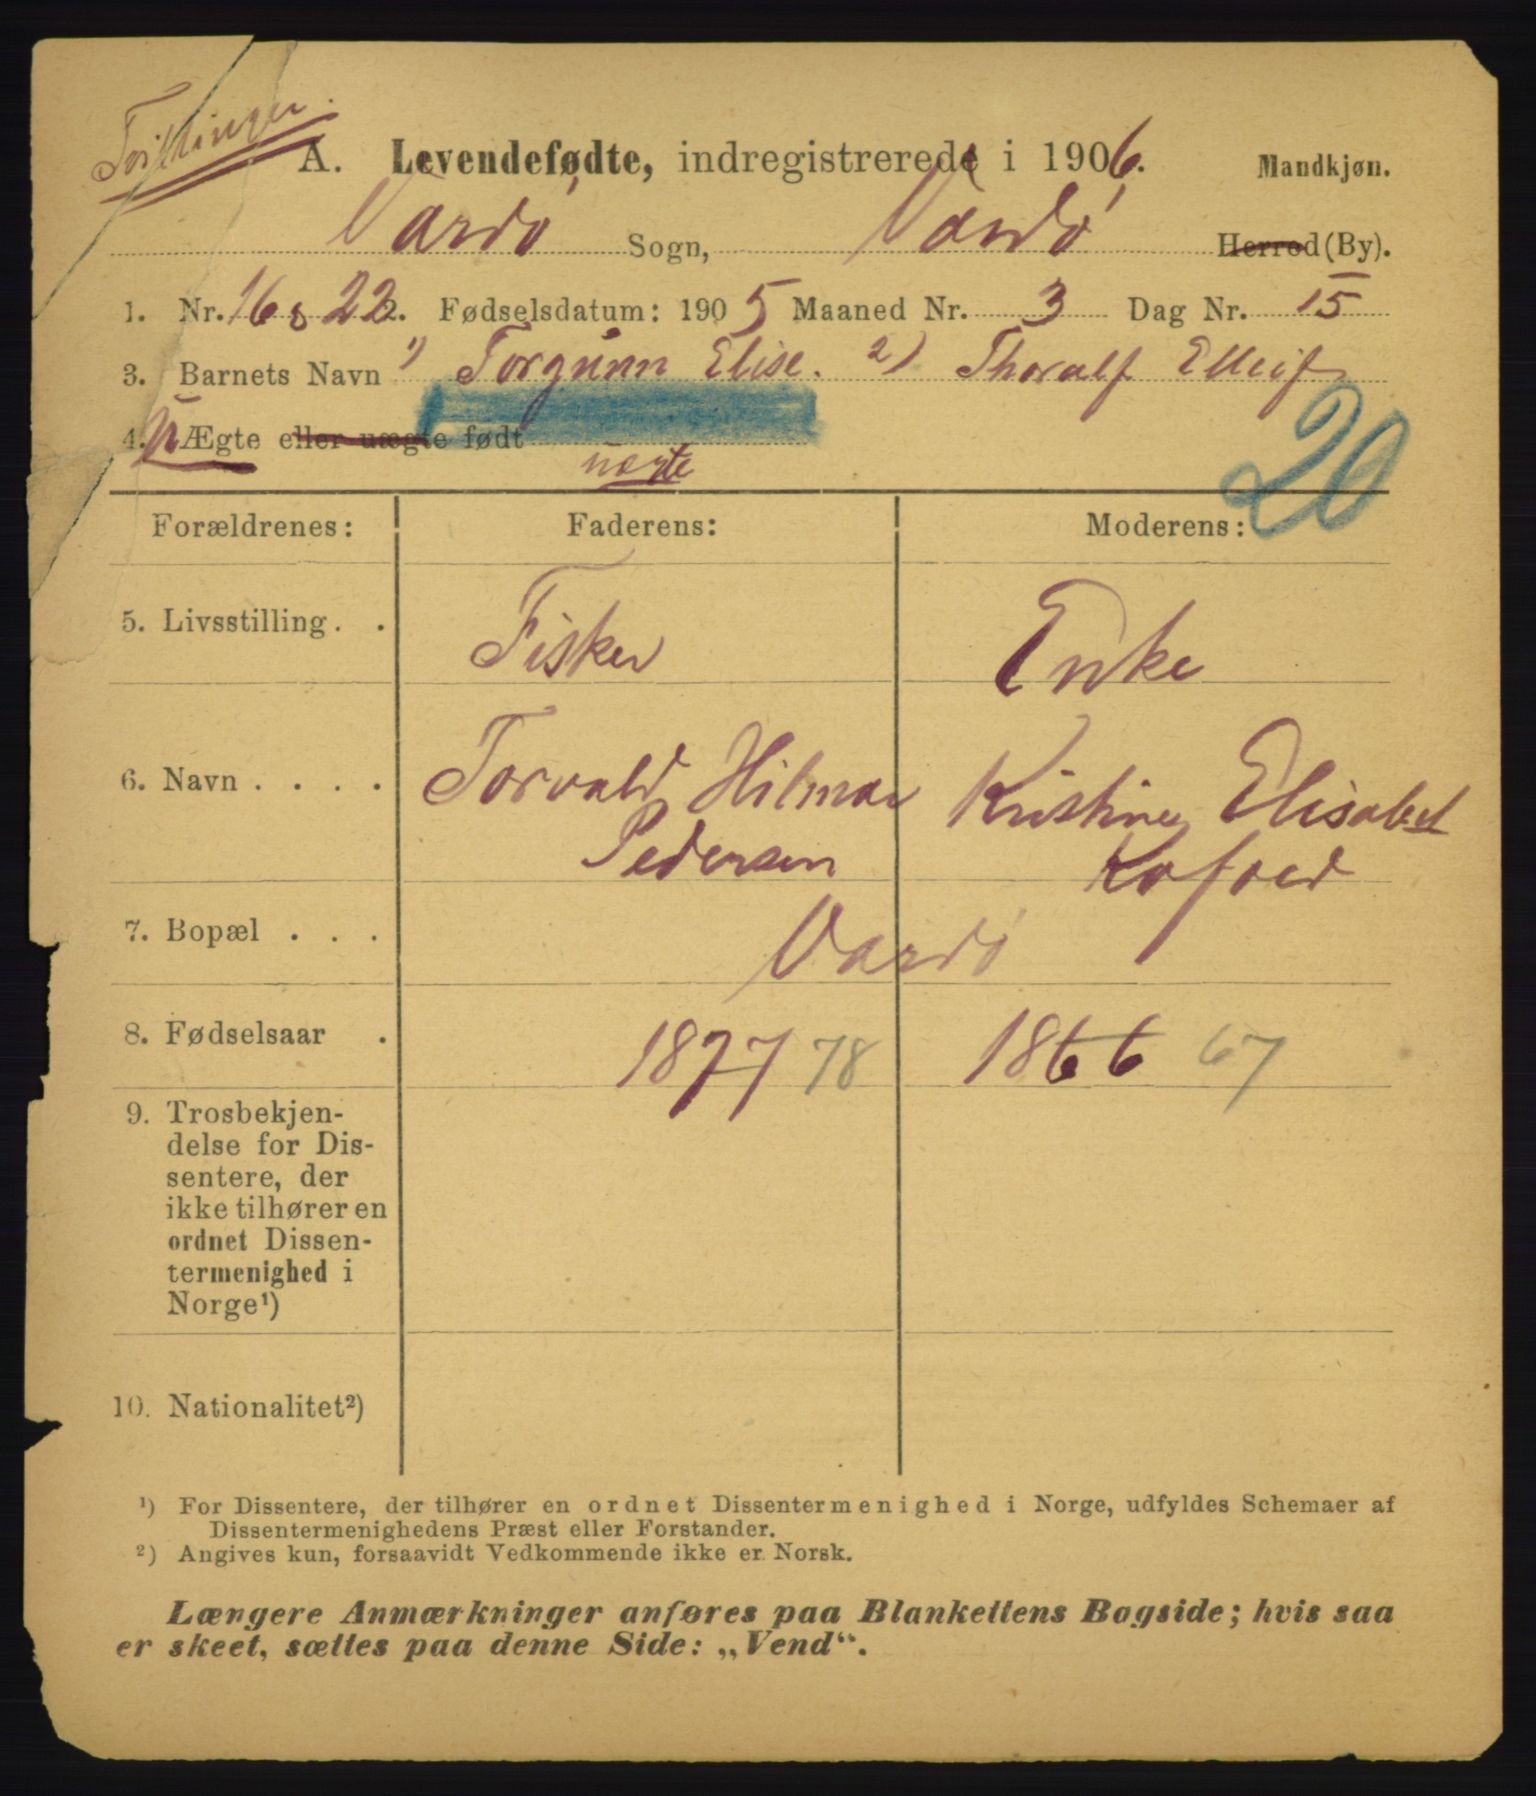 Tvillinger.
A. Levendefødte, indregistrerede i 1906. Mandkjøn.
Vardø Sogn, Vardø Herred (By).
1. Nr. 16 & 22 2. Fødselsdatum: 1905 Maaned Nr. 3 Dag Nr. 15
3. Barnets Navn 1) Torgunn Elise. 2) Thoralf Elleif
4. U Ægte eller uægte født
uægte
20
Forældrenes: Faderens: Moderens:
5. Livsstilling . . Fisker Enke
6. Navn . . . . Torvald Hilmar Kristine Elisabet
Pedersen Kofoed
7. Bopæl . . . Vardø
8. Fødselsaar . 1877 78 1866 67
9. Trosbekjen-
delse for Dis-
sentere, der
ikke tilhører en
ordnet Dissen-
termenighed i
Norge¹)
10. Nationalitet²)
¹) For Dissentere, der tilhører en ordnet Dissentermenighed i Norge, udfyldes Schemaer af
Dissentermenighedens Præst eller Forstander.
²) Angives kun, forsaavidt Vedkommende ikke er Norsk.
Længere Anmærkninger anføres paa Blankettens Bagside; hvis saa
er skeet, sættes paa denne Side: „Vend“.